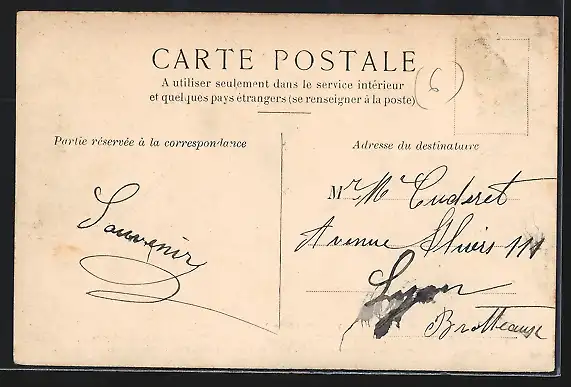 CARTE POSTALE
A utiliser seulement dans le service intérieur
et quelques pays étrangers (se renseigner à la poste)
(6)
Partie réservée à la correspondance
Souvenir
Adresse du destinataire
Mr Mr Cuderet
Avenue Thiers 111
Lyon
Brotteaux